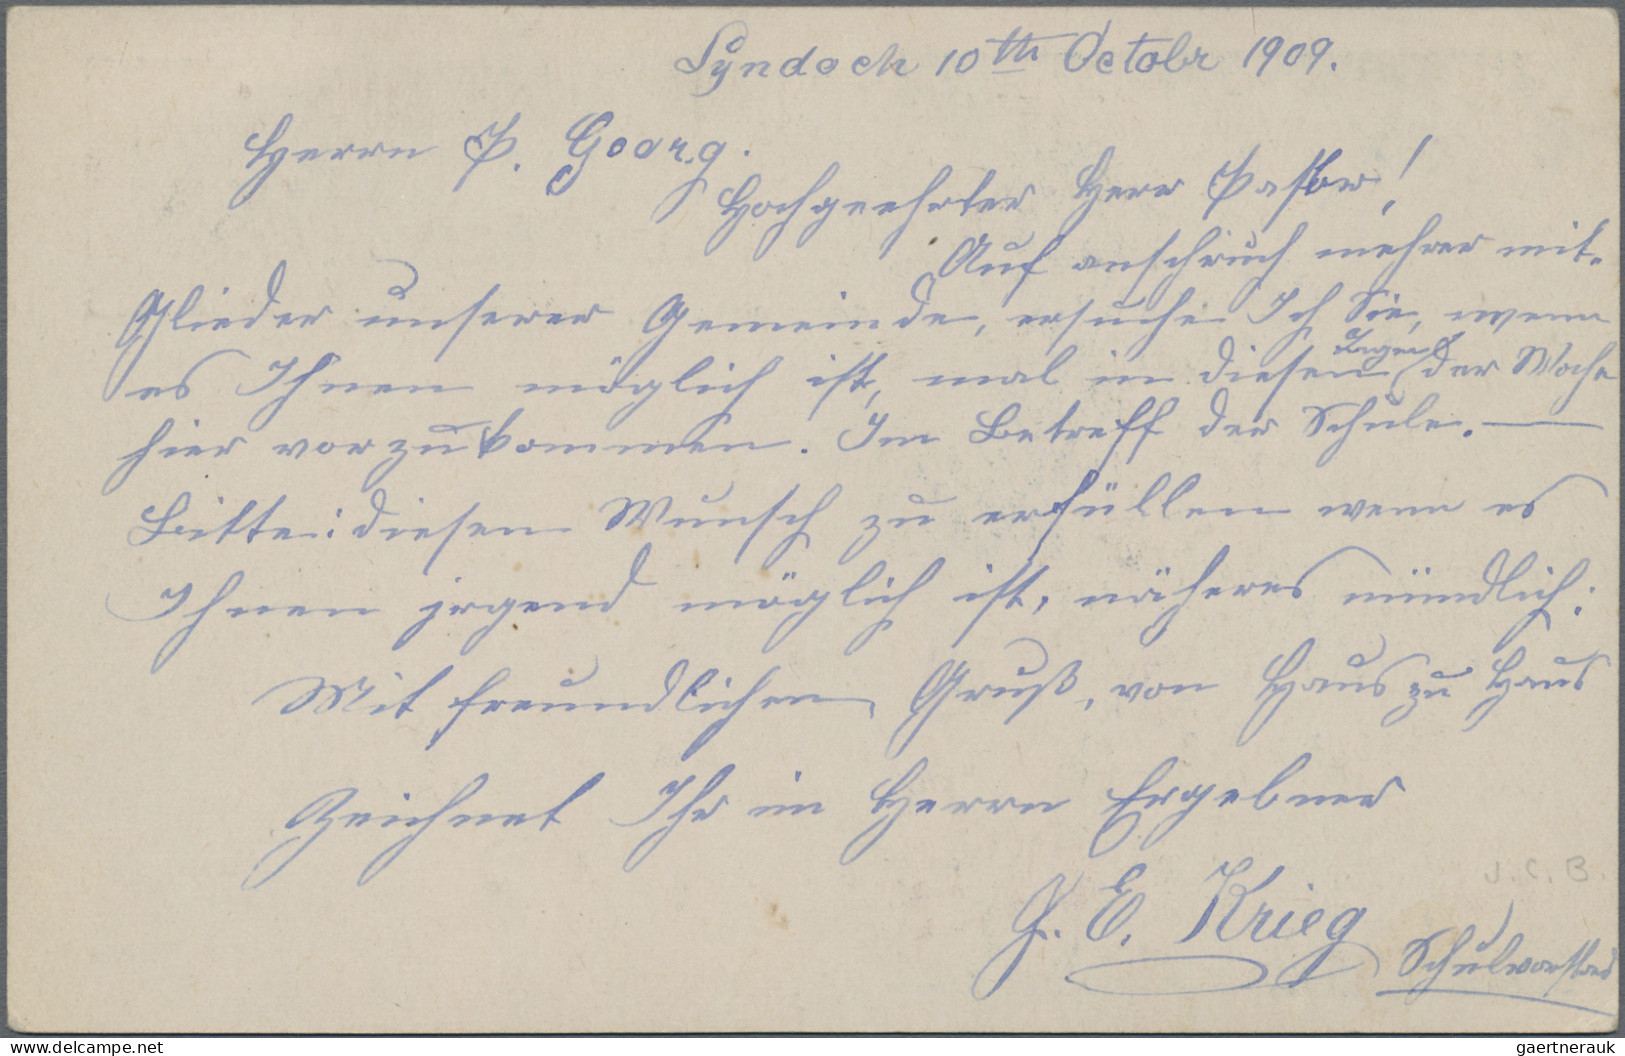 Lyndoch 10th Octobr 1909.
Herrn P. Georg.
Hochgeehrter Herr Pastor!
Auf anschruch mehrer mit-
Glieder unserer Gemeinde, ersuche Ich Sie, wenn
es Ihnen möglich ist, mal in diesen Tagen der Woche
hier vorzukommen. Im Betreff der Schule. —
Bitte: diesen Wunsch zu erfüllen wenn es
Ihnen irgend möglich ist, näheres mündlich:
Mit freundlichen Gruß, von Haus zu Haus
Zeichnet Ihr im Herrn Ergebner
J. E. Krieg
Schulvorstand
J. C. B.
www.delcampe.net
gaertnerauk